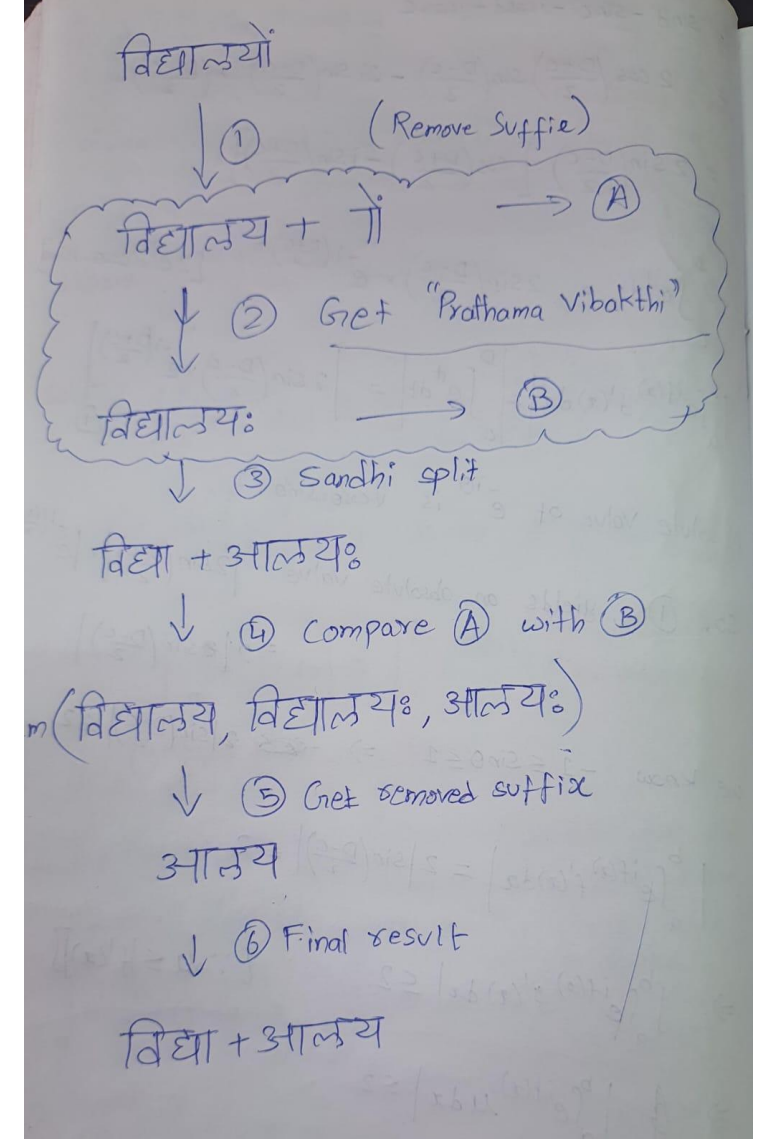 विद्यालयों
↓ ① (Remove Suffie)
विद्यालय + ों → Ⓐ
↓ ② Get "Prathama Vibakthi"
विद्यालयः → Ⓑ
↓ ③ Sandhi split
विद्या + आलयः
↓ ④ Compare Ⓐ with Ⓑ
m(विद्यालय, विद्यालयः, आलयः)
↓ ⑤ Get removed suffix
आलय
↓ ⑥ Final result
विद्या + आलय